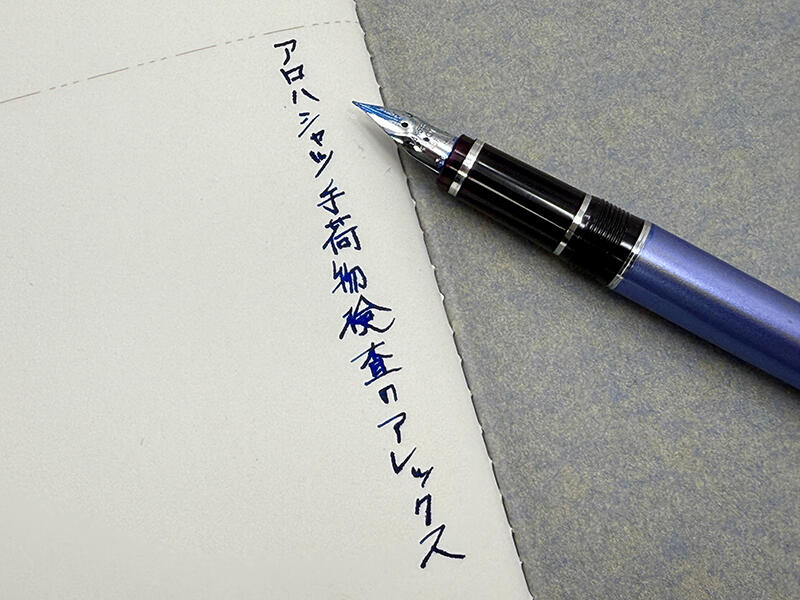 アロハシャツ手荷物検査のアレックス